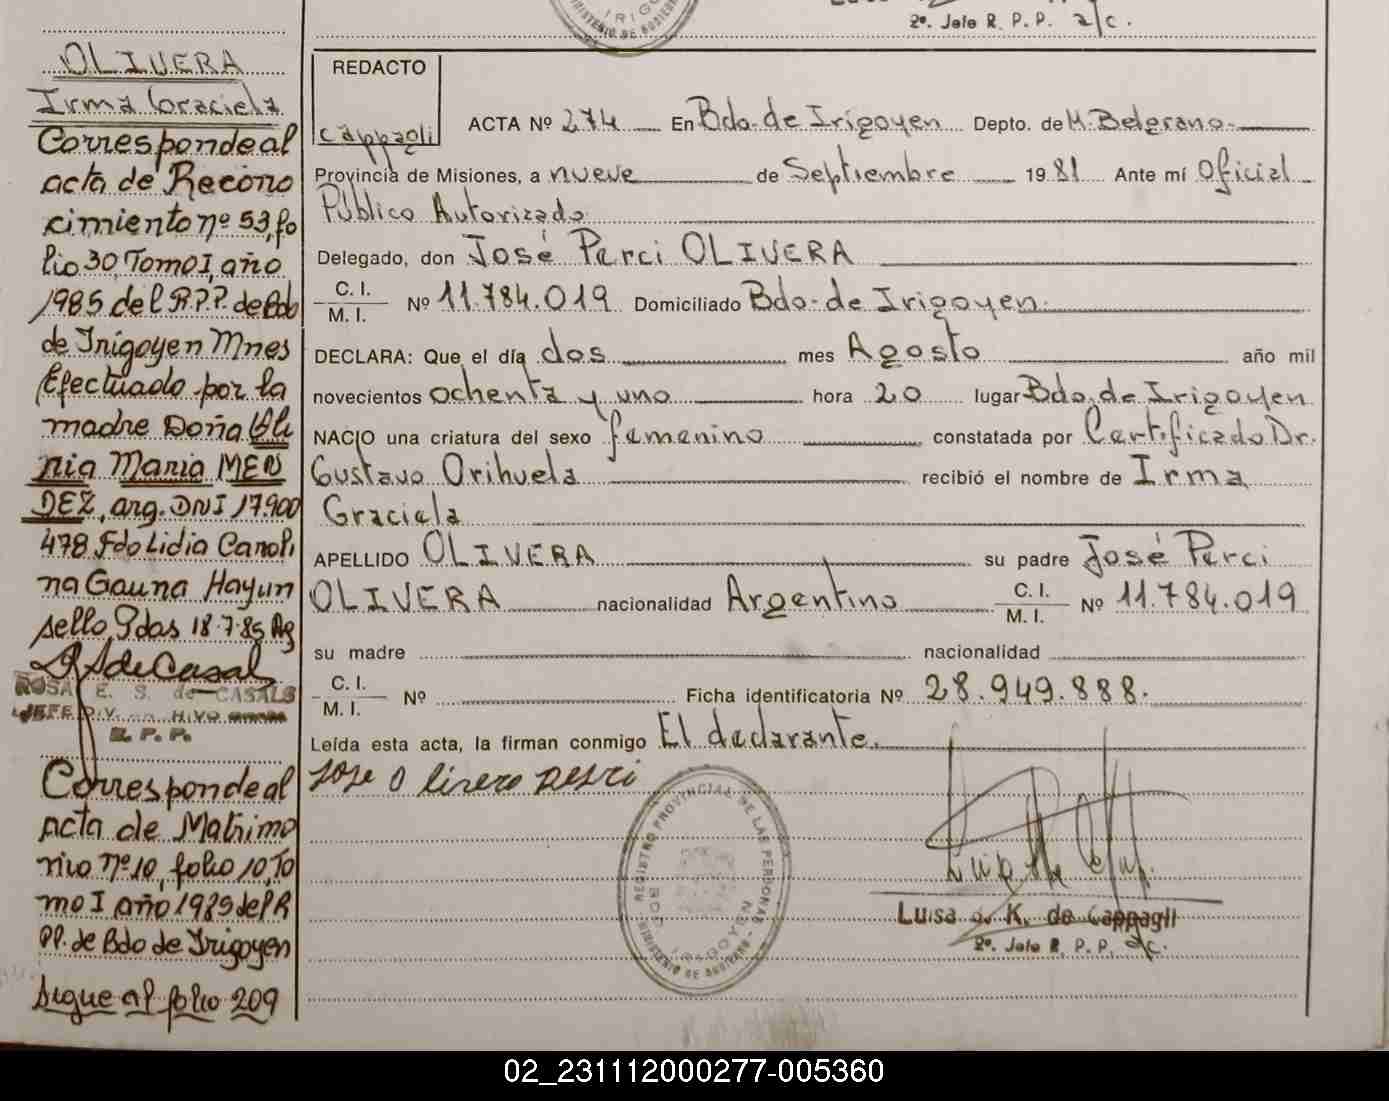 2º. Jefe R. P. P. a/c.
OLIVERA
Irma Graciela
Corresponde al
acta de Recono
cimiento nº 53, fo
lio 30, Tomo I, año
1985 del R.P.P. de Bdo
de Irigoyen Mnes
Efectuado por la
madre Doña
Maria MEN
DEZ, arg. DNI 17.900
478 Fdo Lidia Caroli
na Gauna Hayun
sello, Pdas 18-7-85
ROSA E. S. de CASALS
R. P. P.
Corresponde al
acta de Matrimo
nio nº 10, folio 10, To
mo I año 1985 del R
PP. de Bdo de Irigoyen
Sigue al folio 209
REDACTO
Cappagli
ACTA Nº 274 En Bdo. de Irigoyen Depto. de M. Belgrano
Provincia de Misiones, a nueve de Septiembre 1981 Ante mí Oficial
Público Autorizado
Delegado, don José Perci OLIVERA
C. I.
M. I. Nº 11.784.019 Domiciliado Bdo. de Irigoyen.
DECLARA: Que el día dos mes Agosto año mil
novecientos ochenta y uno hora 20 lugar Bdo. de Irigoyen
NACIO una criatura del sexo femenino constatada por Certificado Dr.
Gustavo Orihuela recibió el nombre de Irma
Graciela
APELLIDO OLIVERA su padre José Perci
OLIVERA nacionalidad Argentino C. I. M. I. Nº 11.784.019
su madre nacionalidad
C. I.
M. I. Nº Ficha identificatoria Nº 28.949.888.
Leída esta acta, la firman conmigo El declarante.
REGISTRO PROVINCIAL DE LAS PERSONAS
MINISTERIO DE GOBIERNO
BDO. IRIGOYEN
Luisa K. de Cappagli
2º. Jefe R. P. P. a/c.
02_231112000277-005360